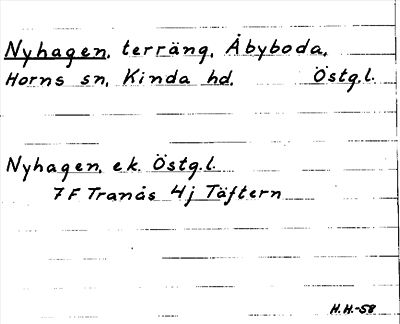 Nyhagen, terräng, Åbyboda,
Horns sn, Kinda hd, Östg.l.
Nyhagen, ek. Östg.l.
7 F Tranås 4j Täftern
H.H.-58